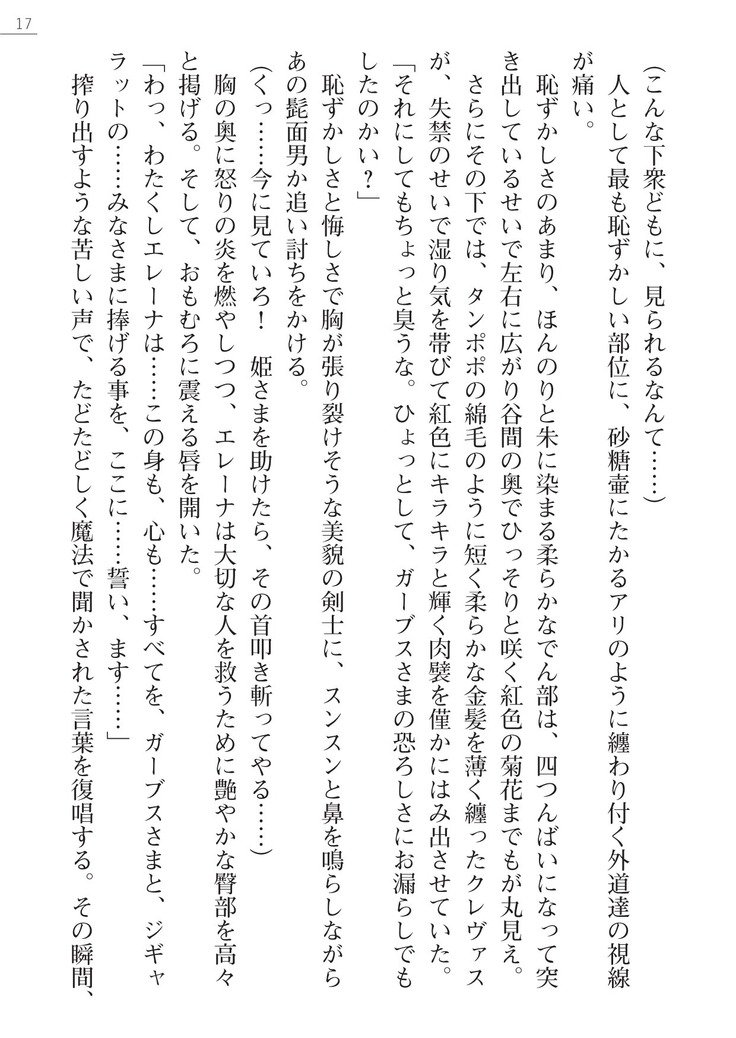 17
(こんな下衆どもに、見られるなんて……)
人として最も恥ずかしい部位に、砂糖壷にたかるアリのように纏わり付く外道達の視線
が痛い。
恥ずかしさのあまり、ほんのりと朱に染まる柔らかなでん部は、四つんばいになって突
き出しているせいで左右に広がり谷間の奥でひっそりと咲く紅色の菊花までもが丸見え。
さらにその下では、タンポポの綿毛のように短く柔らかな金髪を薄く纏ったクレヴァス
が、失禁のせいで湿り気を帯びて紅色にキラキラと輝く肉襞を僅かにはみ出させていた。
「それにしてもちょっと臭うな。ひょっとして、ガーブスさまの恐ろしさにお漏らしでも
したのかい？」
恥ずかしさと悔しさで胸が張り裂けそうな美貌の剣士に、スンスンと鼻を鳴らしながら
あの髭面男か追い討ちをかける。
(くっ……今に見ていろ！　姫さまを助けたら、その首叩き斬ってやる……)
胸の奥に怒りの炎を燃やしつつ、エレーナは大切な人を救うために艶やかな臀部を高々
と掲げる。そして、おもむろに震える唇を開いた。
「わっ、わたくしエレーナは……この身も、心も……すべてを、ガーブスさまと、ジギャ
ラットの……みなさまに捧げる事を、ここに……誓い、ます……」
搾り出すような苦しい声で、たどたどしく魔法で聞かされた言葉を復唱する。その瞬間、